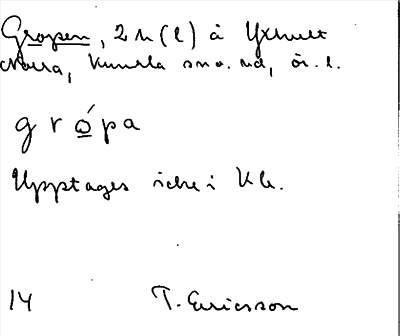 Gropen, 2 h (l) å Yxhult
Norra, Kumla sn o. hd, ör. l.
g r ó p a
Upptages icke i Kb.
14 T. Ericsson